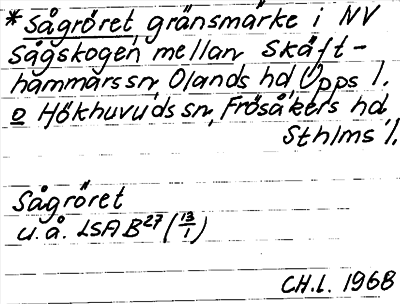 *Sågröret, gränsmärke i NV
Sågskogen, mellan Skäft-
hammars sn, Olands hd, Upps l.
o Hökhuvuds sn, Frösåkers hd
Sthlms l.
Sågröret
u.å. LSA B27 (13/1)
CH.L. 1968